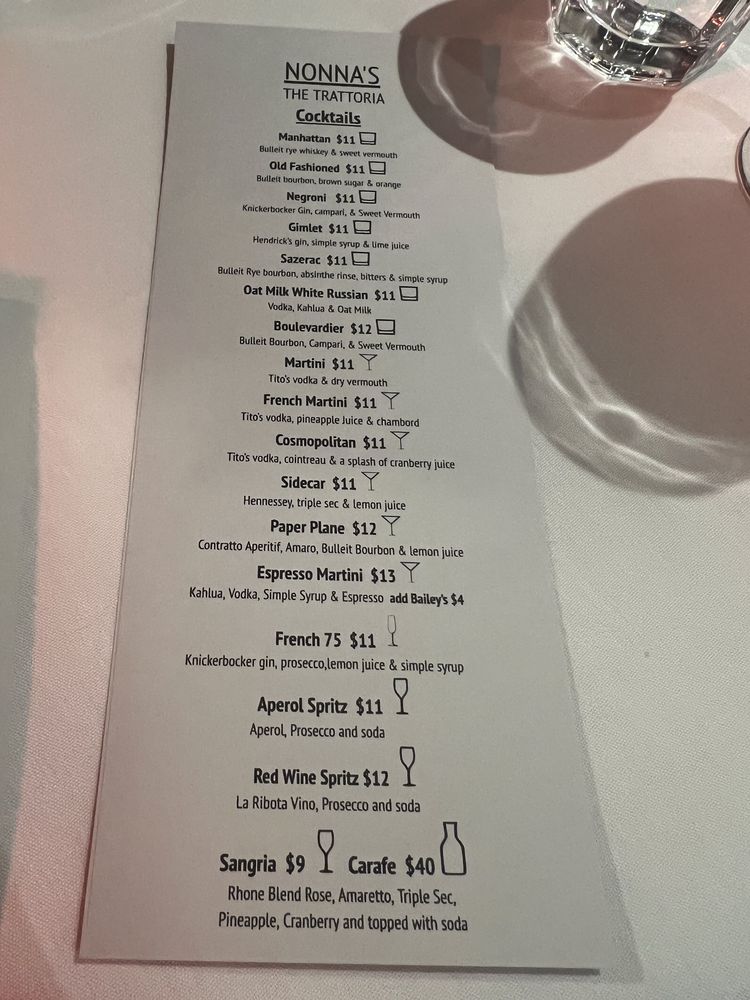 NONNA'S
THE TRATTORIA
Cocktails
Manhattan $11
Bulleit rye whiskey & sweet vermouth
Old Fashioned $11
Bulleit bourbon, brown sugar & orange
Negroni $11
Knickerbocker Gin, campari, & Sweet Vermouth
Gimlet $11
Hendrick's gin, simple syrup & lime juice
Sazerac $11
Bulleit Rye bourbon, absinthe rinse, bitters & simple syrup
Oat Milk White Russian $11
Vodka, Kahlua & Oat Milk
Boulevardier $12
Bulleit Bourbon, Campari, & Sweet Vermouth
Martini $11
Tito's vodka & dry vermouth
French Martini $11
Tito's vodka, pineapple Juice & chambord
Cosmopolitan $11
Tito's vodka, cointreau & a splash of cranberry juice
Sidecar $11
Hennessey, triple sec & lemon juice
Paper Plane $12
Contratto Aperitif, Amaro, Bulleit Bourbon & lemon juice
Espresso Martini $13
Kahlua, Vodka, Simple Syrup & Espresso add Bailey's $4
French 75 $11
Knickerbocker gin, prosecco,lemon juice & simple syrup
Aperol Spritz $11
Aperol, Prosecco and soda
Red Wine Spritz $12
La Ribota Vino, Prosecco and soda
Sangria $9 Carafe $40
Rhone Blend Rose, Amaretto, Triple Sec,
Pineapple, Cranberry and topped with soda